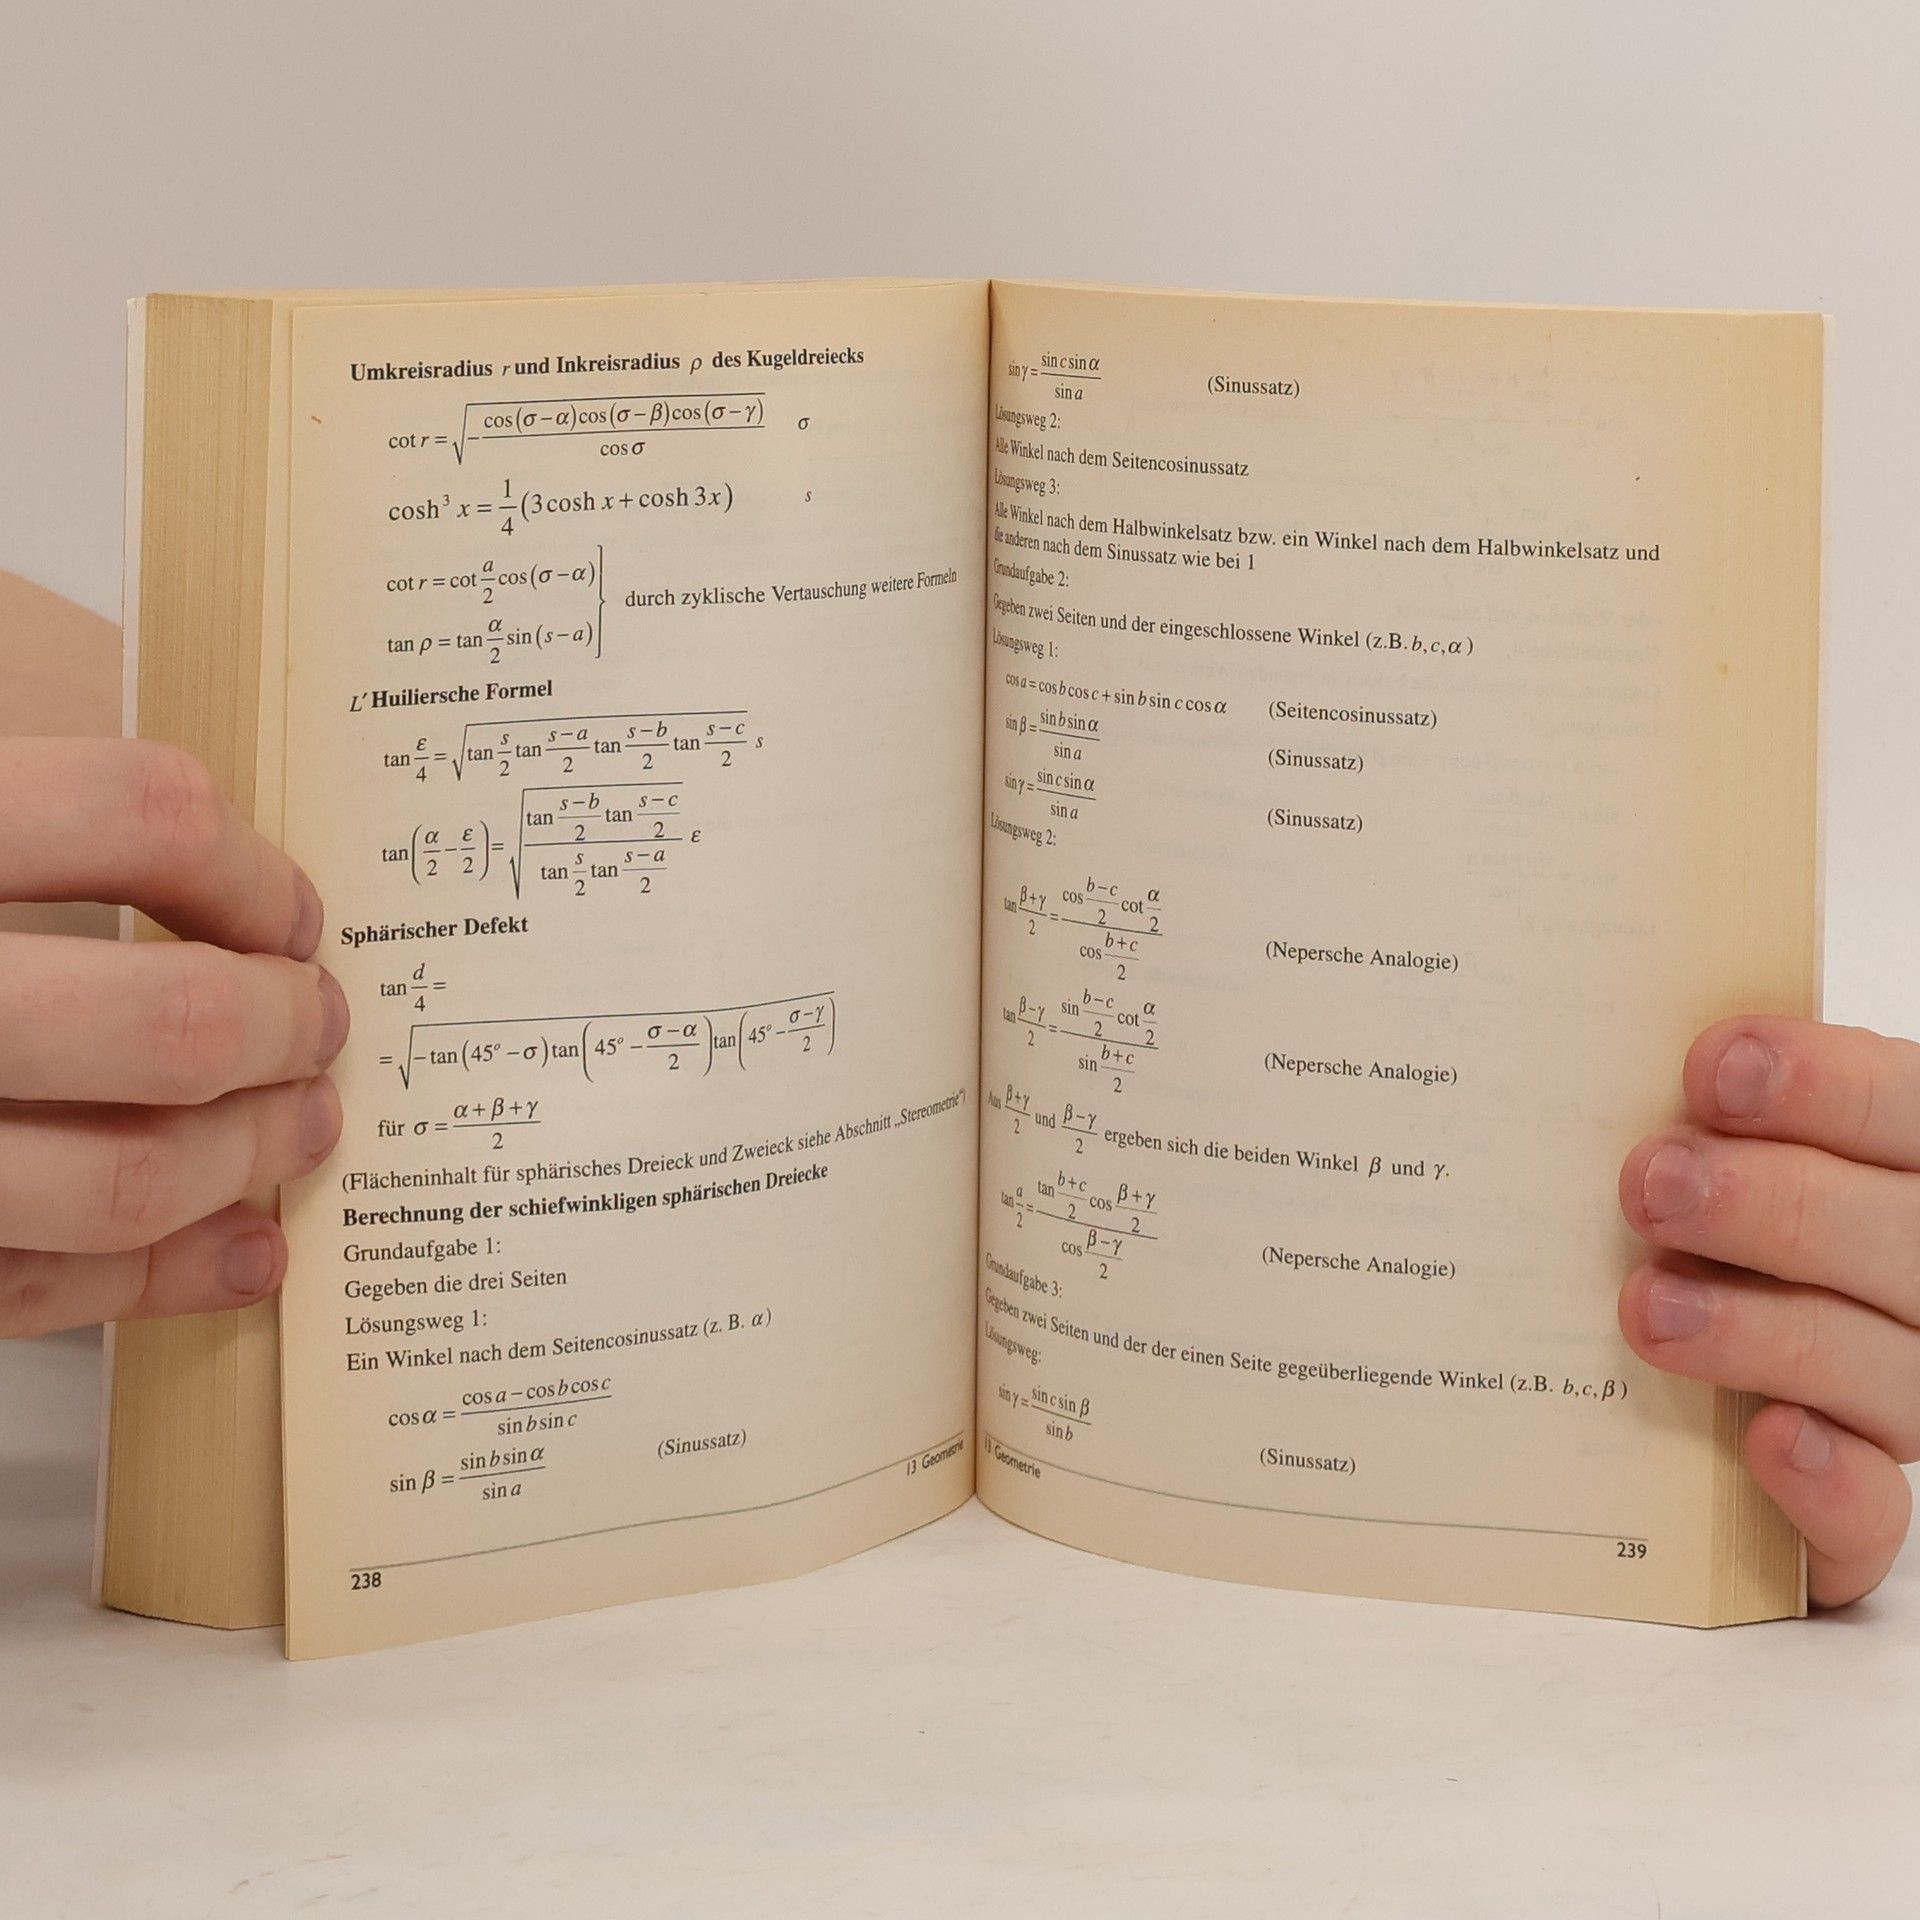 Umkreisradius r und Inkreisradius ρ des Kugeldreiecks
cot r = √(−(cos(σ−α)cos(σ−β)cos(σ−γ))/(cos σ)) σ
cosh³ x = 1/4 (3 cosh x + cosh 3x) s
cot r = cot a/2 cos(σ−α)
durch zyklische Vertauschung weitere Formeln
tan ρ = tan α/2 sin(s−a)
L' Huiliersche Formel
tan ε/4 = √(tan s/2 tan (s−a)/2 tan (s−b)/2 tan (s−c)/2) s
tan(α/2 − ε/2) = √((tan (s−b)/2 tan (s−c)/2)/(tan s/2 tan (s−a)/2)) ε
Sphärischer Defekt
tan d/4 =
= √(−tan(45° −σ)tan(45° − (σ−α)/2)tan(45° − (σ−γ)/2))
für σ = (α+β+γ)/2
(Flächeninhalt für sphärisches Dreieck und Zweieck siehe Abschnitt „Stereometrie“)
Berechnung der schiefwinkligen sphärischen Dreiecke
Grundaufgabe 1:
Gegeben die drei Seiten
Lösungsweg 1:
Ein Winkel nach dem Seitencosinussatz (z. B. α)
cos α = (cos a − cos b cos c)/(sin b sin c)
sin β = (sin b sin α)/(sin a) (Sinussatz)
13 Geometrie
238
sin γ = (sin c sin α)/(sin a) (Sinussatz)
Lösungsweg 2:
Alle Winkel nach dem Seitencosinussatz
Lösungsweg 3:
Alle Winkel nach dem Halbwinkelsatz bzw. ein Winkel nach dem Halbwinkelsatz und
die anderen nach dem Sinussatz wie bei 1
Grundaufgabe 2:
Gegeben zwei Seiten und der eingeschlossene Winkel (z.B. b, c, α)
Lösungsweg 1:
cos a = cos b cos c + sin b sin c cos α (Seitencosinussatz)
sin β = (sin b sin α)/(sin a) (Sinussatz)
sin γ = (sin c sin α)/(sin a) (Sinussatz)
Lösungsweg 2:
tan (β+γ)/2 = (cos (b−c)/2 cot α/2)/(cos (b+c)/2) (Nepersche Analogie)
tan (β−γ)/2 = (sin (b−c)/2 cot α/2)/(sin (b+c)/2) (Nepersche Analogie)
Aus (β+γ)/2 und (β−γ)/2 ergeben sich die beiden Winkel β und γ.
tan a/2 = (tan (b+c)/2 cos (β+γ)/2)/(cos (β−γ)/2) (Nepersche Analogie)
Grundaufgabe 3:
Gegeben zwei Seiten und der der einen Seite gegeüberliegende Winkel (z.B. b, c, β)
Lösungsweg:
sin γ = (sin c sin β)/(sin b) (Sinussatz)
13 Geometrie
239